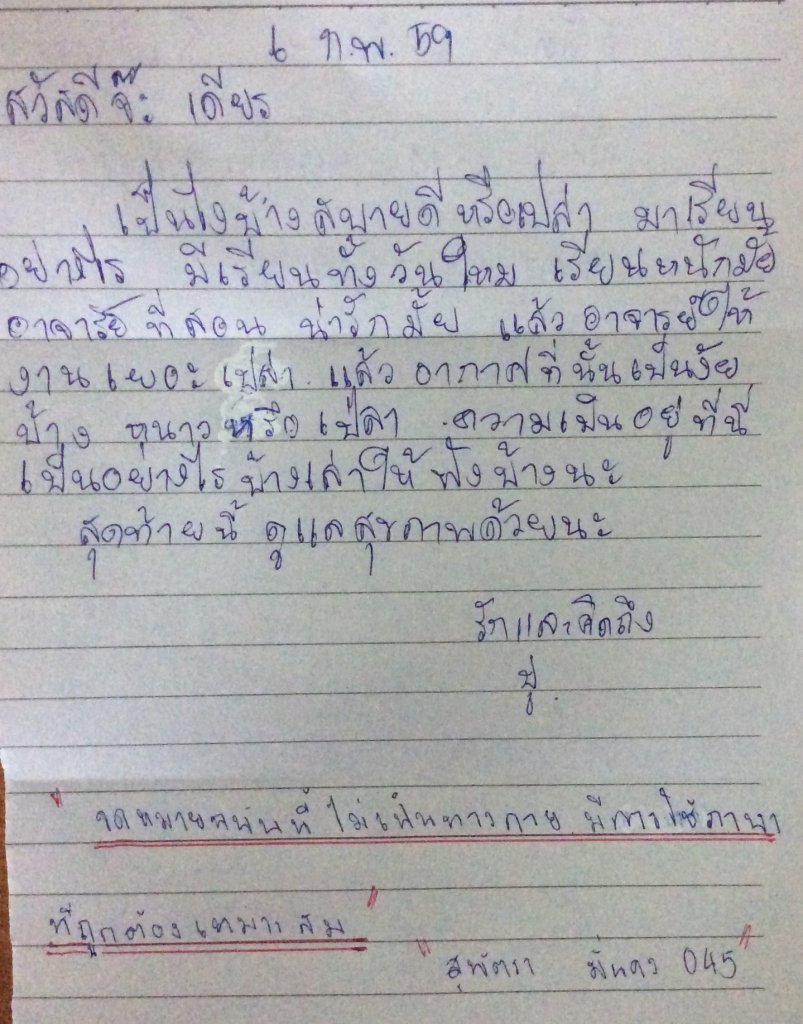 6 ก.พ. 59
สวัสดีจ๊ะ เดียร
เป็นไงบ้าง สบายดีหรือเปล่า มาเรียน
อย่างไร มีเรียนทั้งวันไหม เรียนหนักมั้ย
อาจารย์ที่สอน น่ารักมั้ย แล้วอาจารย์ให้
งานเยอะเปล่า แล้ว อากาศที่นั้นเป็นงัย
บ้าง หนาวหรือเปล่า ความเป็นอยู่ที่นี่
เป็นอย่างไรบ้างเล่าให้ฟังบ้างนะ
สุดท้ายนี้ ดูแลสุขภาพด้วยนะ
รักและคิดถึง
ปู.
" จดหมายฉบับนี้ ไม่เป็นทางการ มีการใช้ภาษา
ที่ถูกต้องเหมาะสม "
" สุพัตรา 045 "